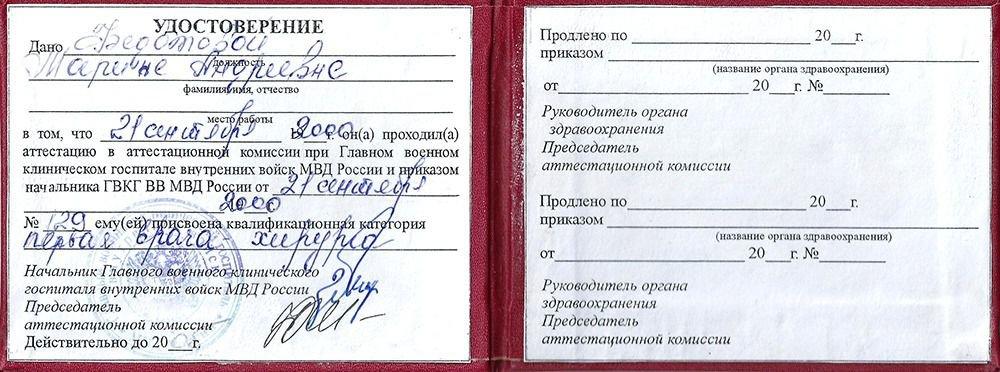 УДОСТОВЕРЕНИЕ
Дано Федотовой
должность
Марине Андреевне
фамилия, имя, отчество
место работы
в том, что 21 сентября 2000 г. он(а) проходил(а)
аттестацию в аттестационной комиссии при Главном военном
клиническом госпитале внутренних войск МВД России и приказом
начальника ГВКГ ВВ МВД России от 21 сентября
2000
№ 129 ему(ей) присвоена квалификационная категория
первая врача хирурга
Начальник Главного военного клинического
госпиталя внутренних войск МВД России
Председатель
аттестационной комиссии
Действительно до 20___г.
Продлено по ___ 20___г.
приказом
(название органа здравоохранения)
от ___ 20___г. №___
Руководитель органа
здравоохранения
Председатель
аттестационной комиссии
Продлено по ___ 20___г.
приказом
(название органа здравоохранения)
от ___ 20___г. №___
Руководитель органа
здравоохранения
Председатель
аттестационной комиссии